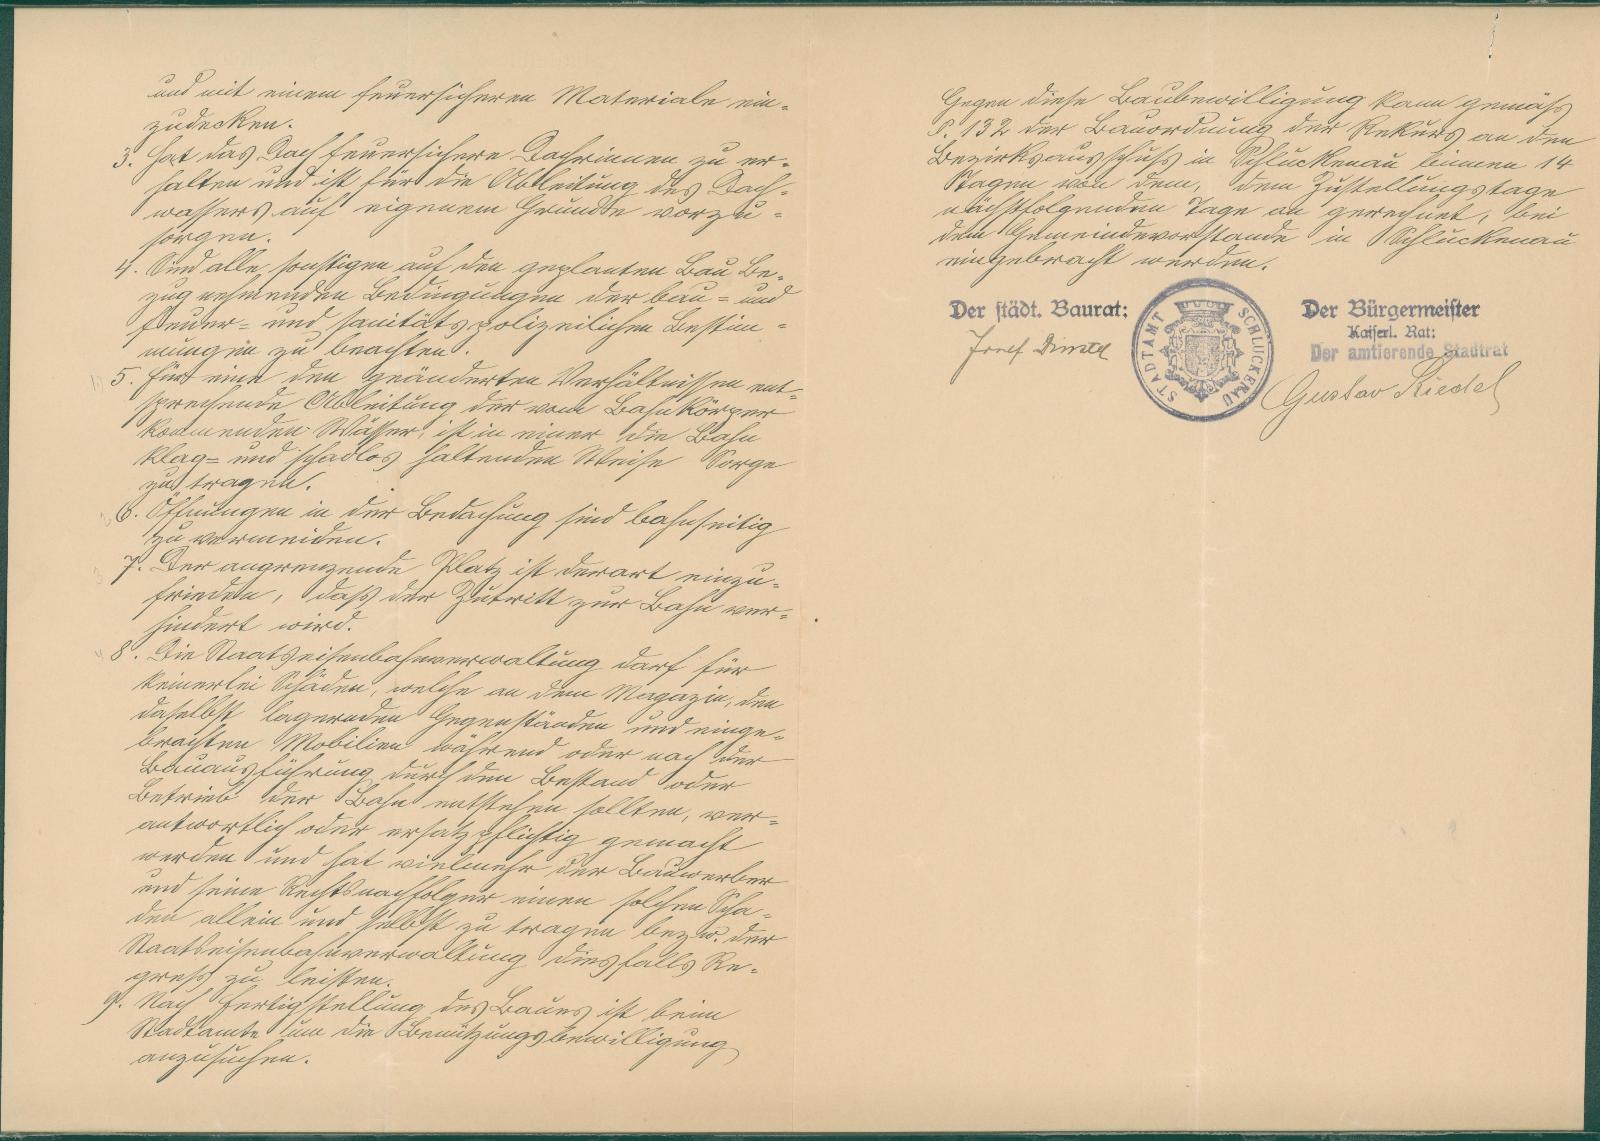 und mit einem feuersicheren Materiale ein=
zudecken.
3. Hat das Dach feuersichere Dachrinnen zu er=
halten und ist für die Ableitung des Dach=
wassers auf eigenem Grunde vorzu=
sorgen.
4. Sind alle sonstigen auf den geplanten Bau Be=
zug nehmenden Bedingungen der bau= und
feuer= und sanitätspolizeilichen Bestim=
mungen zu beachten.
5. Für eine den geänderten Verhältnissen ent=
sprechende Ableitung der vom Bahnkörper
kommenden Wässer, ist in einer die Bahn
klag= und schadlos haltenden Weise Sorge
zu tragen.
6. Öffnungen in der Bedachung sind bahnseitig
zu vermeiden.
7. Der angrenzende Platz ist derart einzu=
frieden, daß der Zutritt zur Bahn ver=
hindert wird.
8. Die Staatseisenbahnverwaltung darf für
keinerlei Schäden, welche an dem Magazin, den
daselbst lagernden Gegenständen und einge=
brachten Mobilien während oder nach der
Bauausführung durch den Bestand oder
Betrieb der Bahn entstehen sollten, ver=
antwortlich oder ersatzpflichtig gemacht
werden und hat vielmehr der Bauwerber
und seine Rechtsnachfolger einen solchen Scha=
den allein und selbst zu tragen bezw. der
Staatseisenbahnverwaltung diesfalls Re=
greß zu leisten.
9. Nach Fertigstellung des Baues ist beim
Stadtamte um die Benützungsbewilligung
anzusuchen.
Gegen diese Baubewilligung kann gemäß
§. 132 der Bauordnung der Rekurs an den
Bezirksausschuß in Schluckenau binnen 14
Tagen von dem, dem Zustellungstage
nächstfolgenden Tage an gerechnet, bei
dem Gemeindevorstande in Schluckenau
eingebracht werden.
Der städt. Baurat:
Josef
STADTAMT SCHLUCKENAU
Der Bürgermeister
Kaiserl. Rat:
Der amtierende Stadtrat
Gustav Riedel